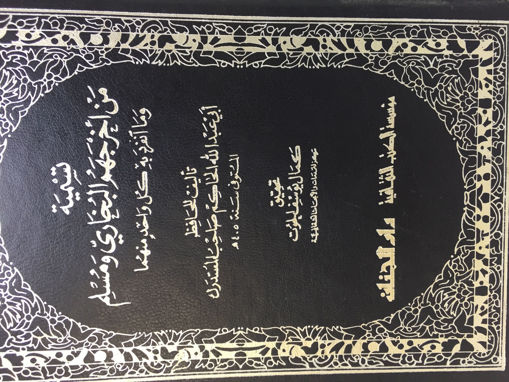 تسمية
من أخرجهم البخاري ومسلم
وما انفرد به كل واحد منهما
تأليف الحافظ
أبي عبد الله الحاكم صاحب المستدرك
المتوفى سنة ٤٠٥ هـ
تحقيق
كمال يوسف الحوت
مركز الخدمات والأبحاث الثقافية
مؤسسة الكتب الثقافية دار الجنان